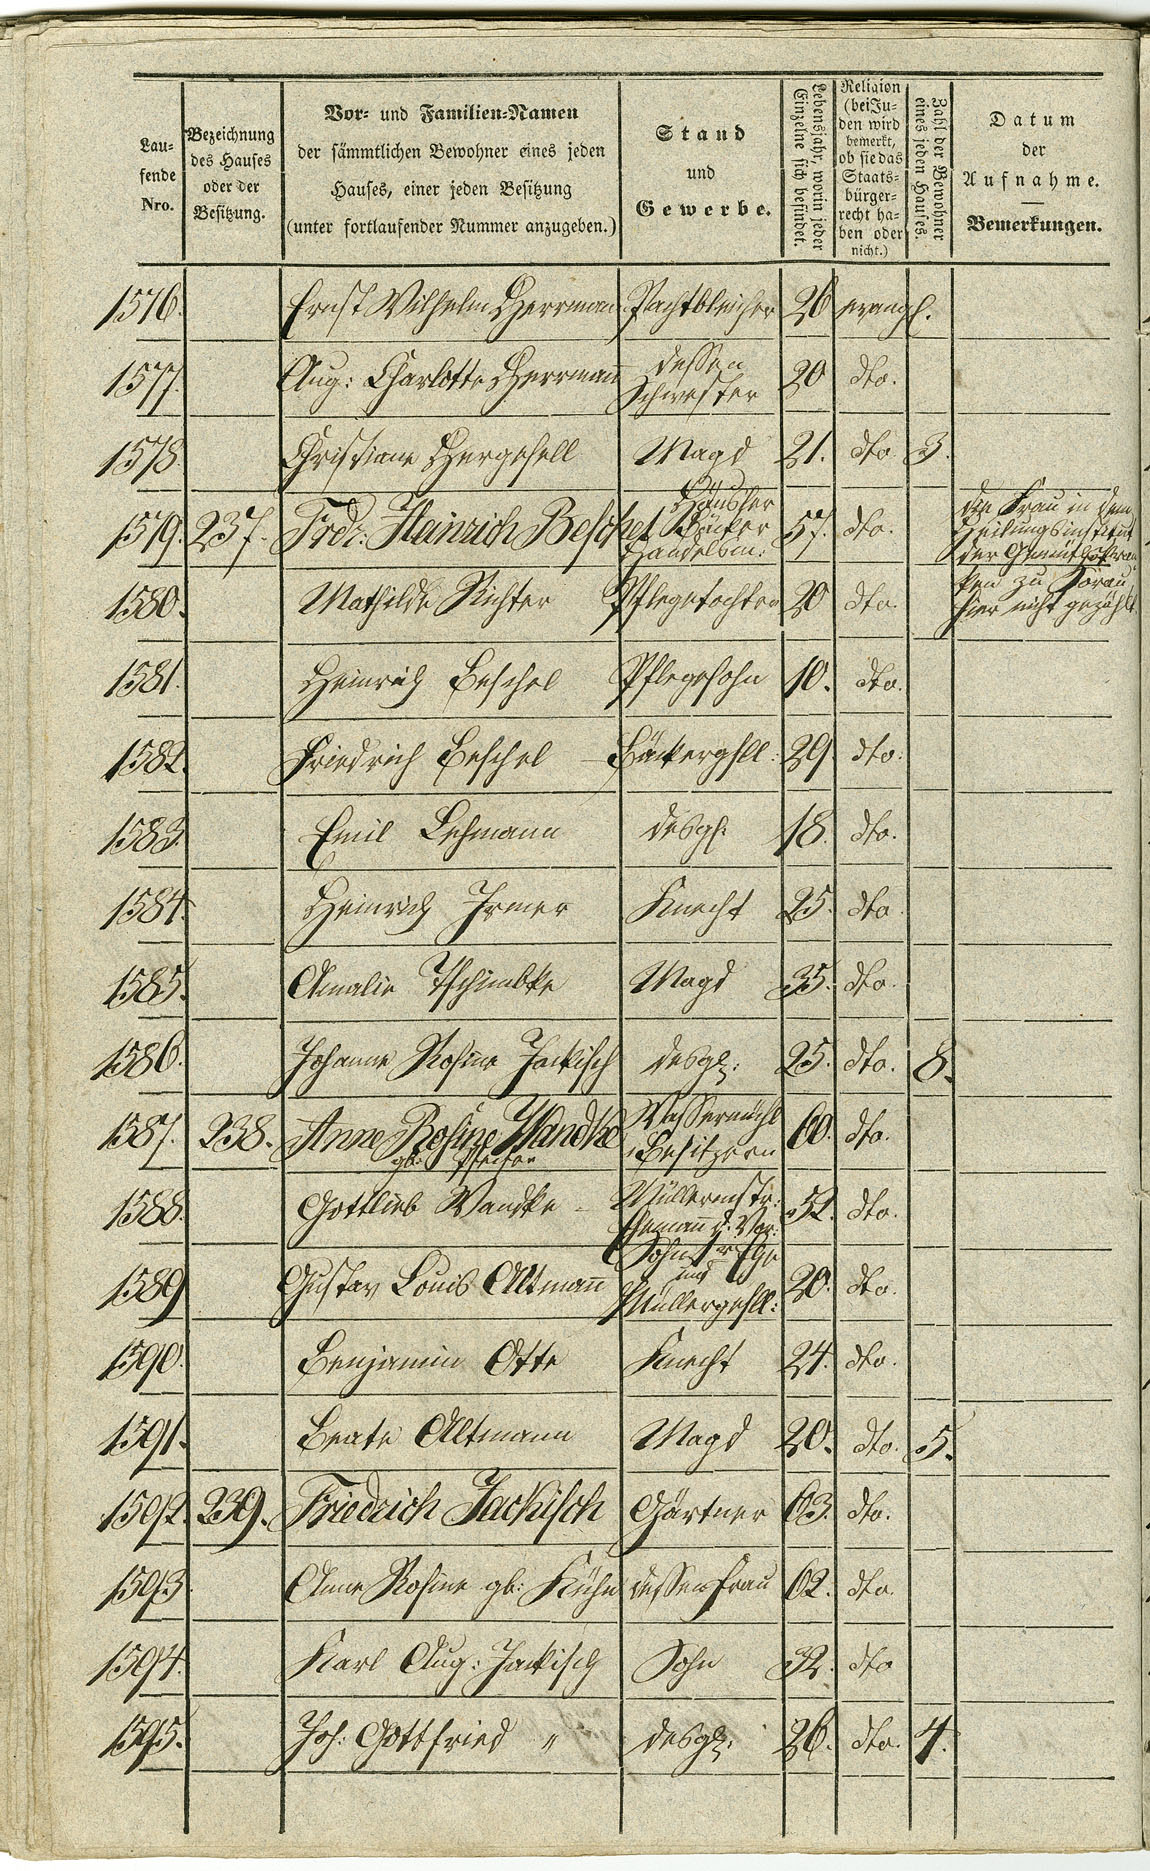 Lau-
fende
Nro.
Bezeichnung
des Hauses
oder der
Besitzung.
Vor- und Familien-Namen
der sämmtlichen Bewohner eines jeden
Hauses, einer jeden Besitzung
(unter fortlaufender Nummer anzugeben.)
Stand
und
Gewerbe.
Lebensjahr, worin jeder
Einzelne sich befindet.
Religion
(bei Ju-
den wird
bemerkt,
ob sie das
Staats-
bürger-
recht ha-
ben oder
nicht.)
Zahl der Bewohner
eines jeden Hauses.
Datum
der
Aufnahme.
Bemerkungen.
1576. Ernst Wilhelm Herrmann Pachtbleicher 26 evangl.
1577. Aug: Charlotte Herrmann dessen Schwester 20 dto.
1578. Christiane Hergesell Magd 21. dto. 3.
1579. 237. Frdr: Heinrich Beschel Häusler Bäcker Handelsm: 57. dto.
die Frau in dem
Heilungsinstitut
der Gemüthskran
ken zu Sorau,
hier nicht gezählt.
1580. Mathilde Richter Pflegetochter 20 dto.
1581. Heinrich Beschel Pflegesohn 10. dto.
1582. Friedrich Beschel Bäckergsll: 29 dto.
1583. Emil Lehmann desgl: 18. dto.
1584. Heinrich Irmer Knecht 25. dto.
1585. Amalie Tschimbke Magd 35. dto.
1586. Johanne Rosine Jackisch desgl: 25. dto. 8.
1587. 238. Anne Rosine Wandke Wassermühl
gb: Besitzern 60. dto.
1588. Gottlieb Wandke Müllermstr:
Ehemann d. Vor: 52. dto.
1589 Gustav Louis Altmann Sohn 1r Ehe
und
Müllergesll: 20. dto.
1590. Benjamin Otte Knecht 24. dto.
1591. Beate Altmann Magd 20. dto. 5.
1592. 239. Friedrich Jackisch Gärtner 63. dto.
1593. Anne Rosine gb: Kühn dessen Frau 62. dto.
1594. Karl Aug: Jackisch Sohn 32. dto
1595. Joh: Gottfried " desgl: 26. dto. 4.